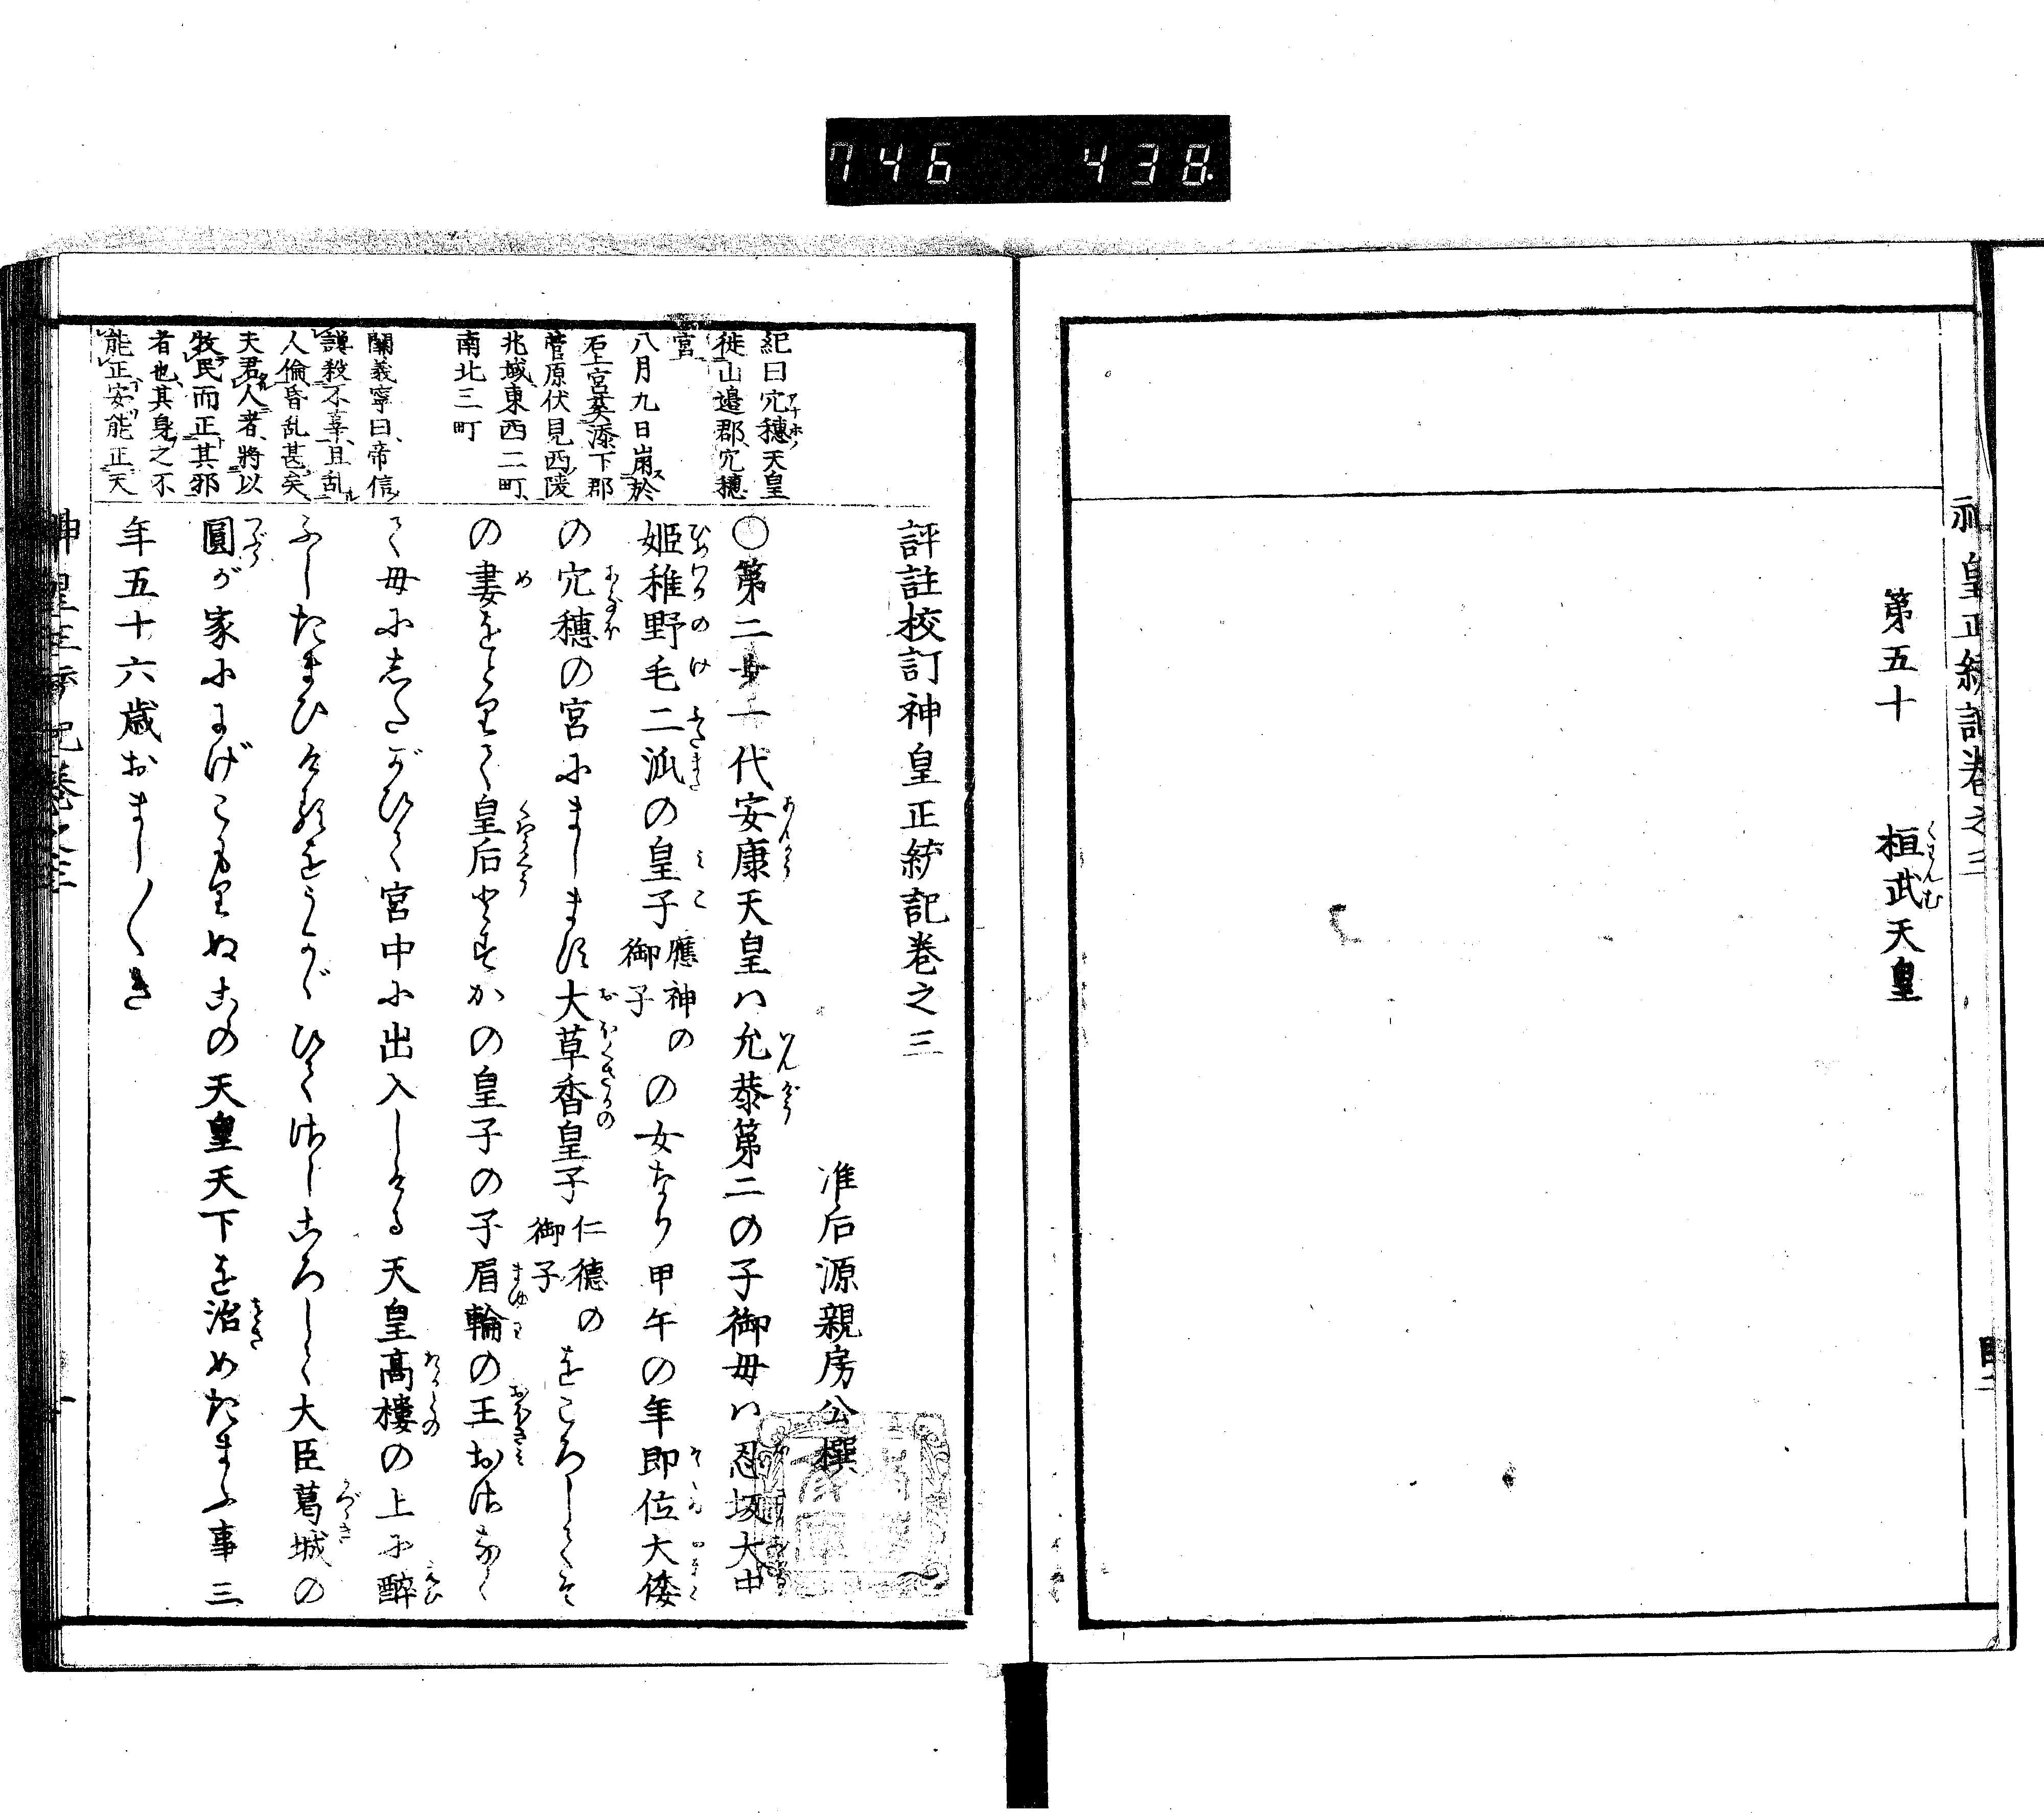 746 438
神皇正統記卷之二
第五十 桓武天皇
評註校訂神皇正統記卷之三
准后源親房公撰
紀曰穴穗天皇
徙山邉郡穴穗
宮
八月九日崩於
石上宮葬添下郡
菅原伏見西陵
兆域東西二町
南北三町
關義寧曰帝信
讒殺不辜且乱
人倫昏乱甚矣
夫君人者將以
牧民而正其邪
者也其身之不
能正安能正天
〇第二十一代安康天皇ハ允恭第二の子御母ハ忍坂大中
姫稚野毛二派の皇子應神の御子の女なり甲午の年即位大倭
の穴穗の宮にまします大草香皇子仁德の御子をころしてそ
の妻をとりて皇后とすかの皇子の子眉輪の王おさなく
て母にしたがひて宮中に出入しける天皇高樓の上に醉
ふしたまひけるをうかゞひてさしころして大臣葛城の
圓が家ににげこもりぬこの天皇天下を治めたまふ事三
年五十六歳おまし〱き
神皇正統記卷之三 一